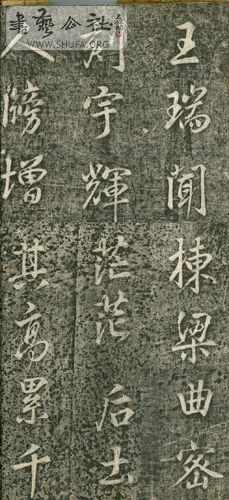 書藝公社
WWW.SHUFA.ORG
王瑞聞棟梁曲密
宇輝茫茫后土
人牓增其高累千